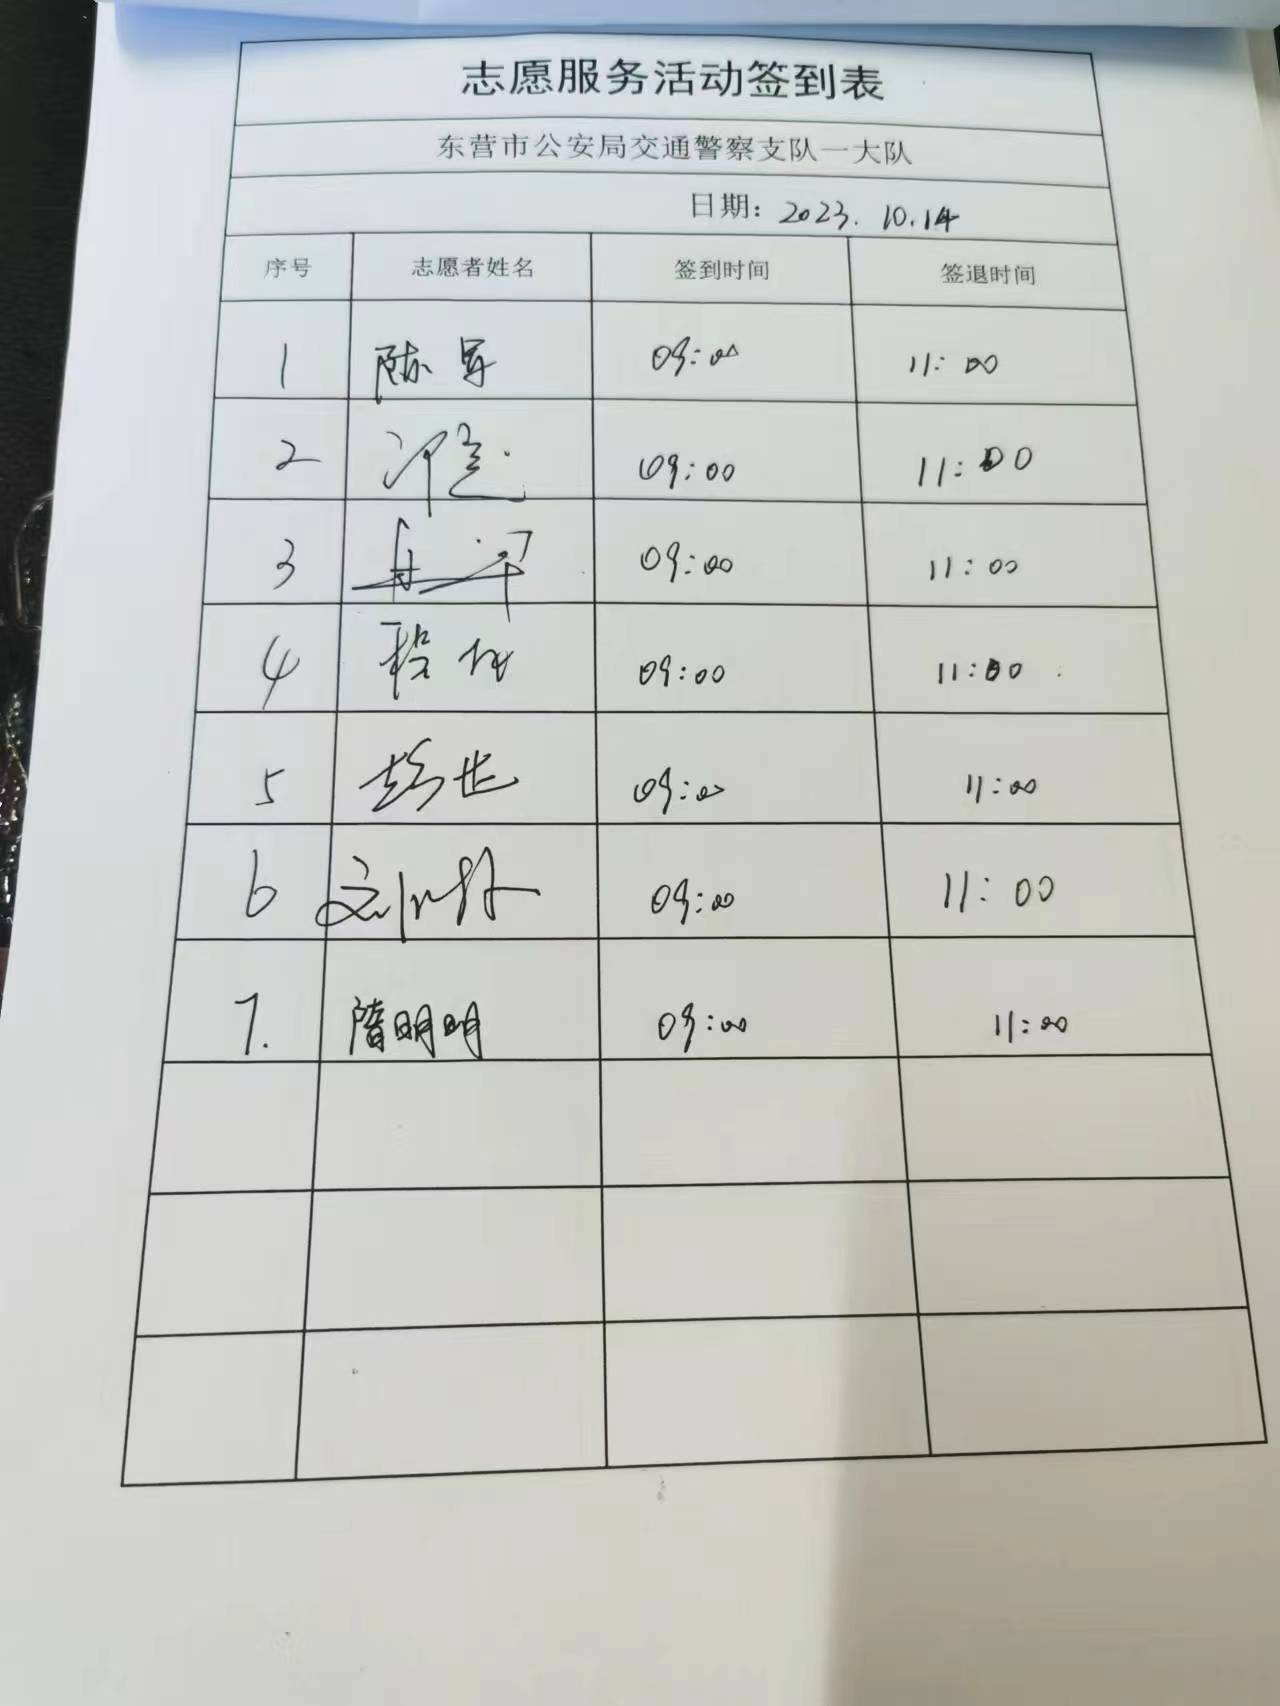 志愿服务活动签到表
东营市公安局交通警察支队一大队
日期：2023.10.14
序号 志愿者姓名 签到时间 签退时间
1 陈军 09:00 11:00
2 09:00 11:00
3 09:00 11:00
4 09:00 11:00
5 09:00 11:00
6 09:00 11:00
7. 隋明明 09:00 11:00